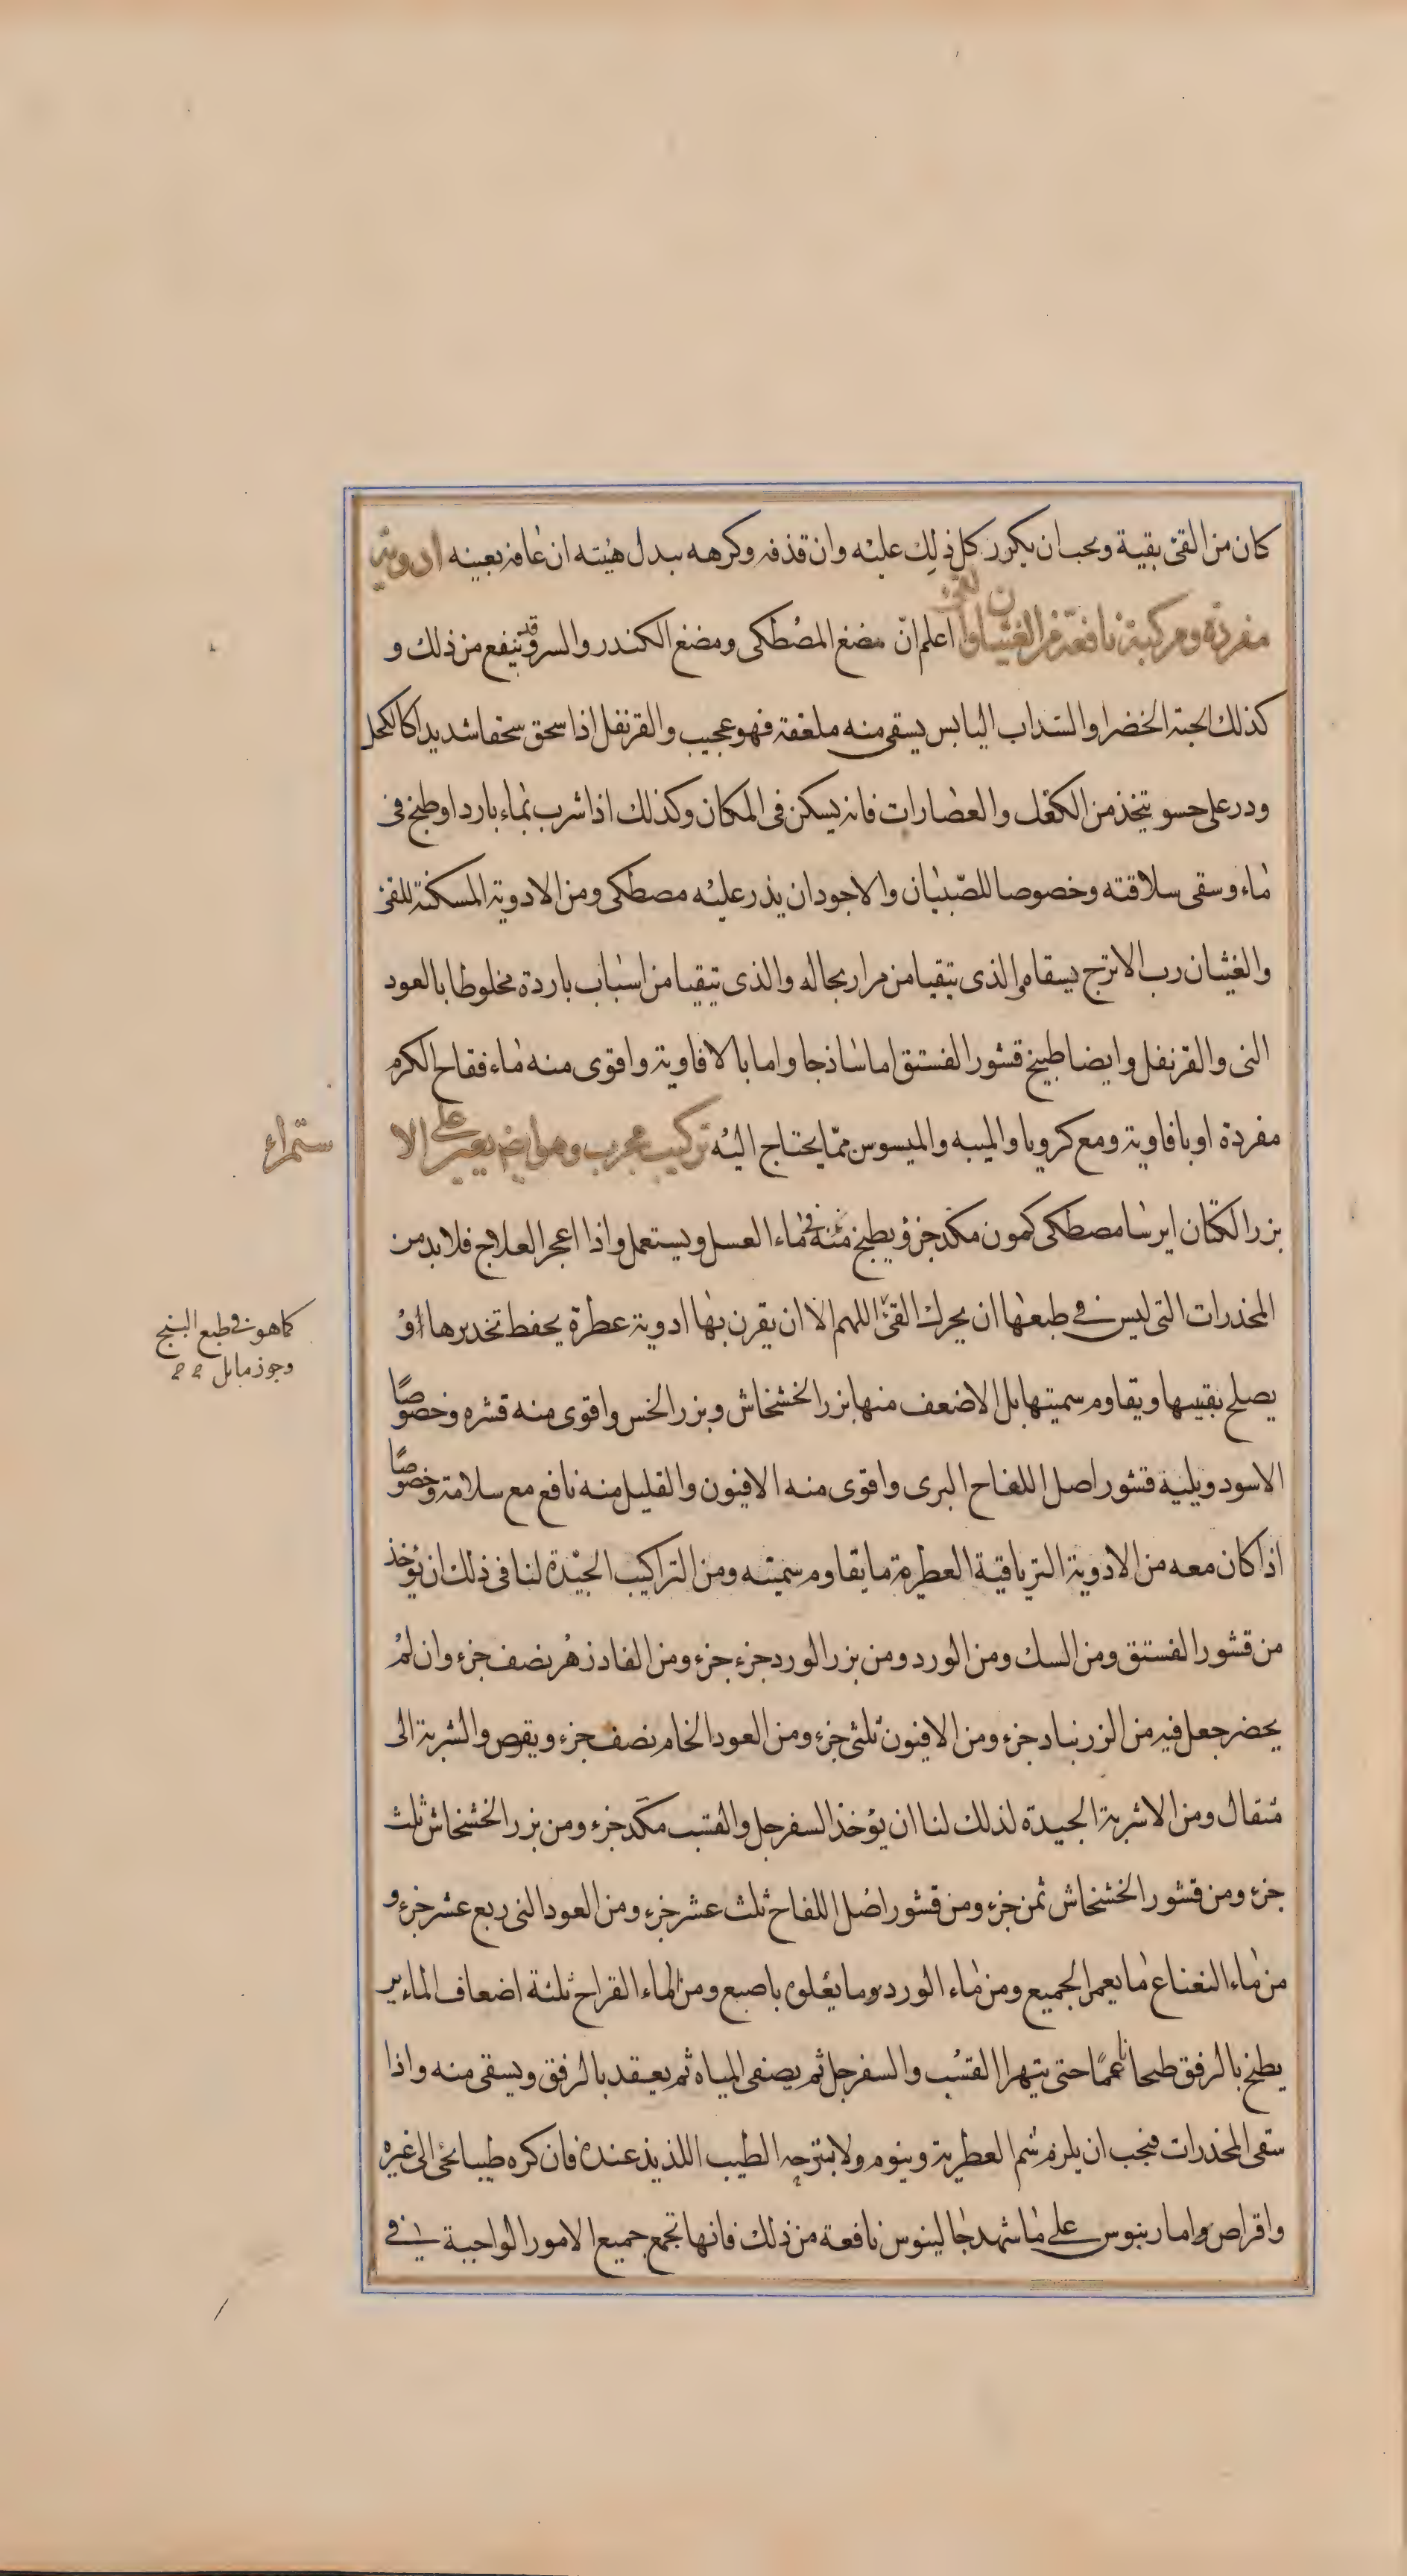 كان من القئ بقية ويجب ان يكرر كل ذلك عليه وان قذفه وكرهه بدل هيئته ان عافه بعينه ادوية
مفردة ومركبة نافعة من الغثيان والقئ اعلم انّ مضغ المصطكى ومضغ الكندر والسرو قد ينفع من ذلك و
كذلك الحبة الخضرا والسداب اليابس يسقى منه ملعقة فهو عجيب والقرنفل اذا سحق سحقا شديدا كالكحل
ودر على حسو يتخذ من الكعك والعصارات فانه يسكن فى المكان وكذلك اذا شرب بماء بارد او طبخ فى
ماء وسقى سلاقته وخصوصا للصّبيان والاجود ان يذر عليه مصطكى ومن الادوية المسكنة للقئ
والغثيان رب الاترج يسقاه والذى يتقيا من مرار بحاله والذى يتقيا من اسباب باردة مخلوطا بالعود
النى والقرنفل وايضا طبيخ قشور الفستق اما ساذجا واما بالافاوية واقوى منه ماء فقاح الكرم
مفردة او بافاوية ومع كرويا والميبه والميسوس ممّا يحتاج اليه تركيب مجرب وهو ايضا يعين على الا
ستمراء
بزر الكتان ايرسا مصطكى كمون مكد جزؤ يطبخ منه فى ماء العسل ويستعمل واذا اعجز العلاج فلا بد من
المخدرات التى ليس فى طبعها ان يحرك القئ اللهم الا ان يقرن بها ادوية عطرة يحفظ تخديرها او
كما هو فى طبع البنج
وجوز ماثل
يصلح بقيتها ويقاوم سميتها بل الاضعف منها بزر الخشخاش وبزر الخس واقوى منه قشره وخصوصًا
الاسود ويليه قشور اصل اللفاح البرى واقوى منه الافيون والقليل منه نافع مع سلامة وخصوصًا
اذا كان معه من الادوية الترياقية العطرة ما يقاوم سميته ومن التراكيب الجيّدة لنا فى ذلك ان يؤخذ
من قشور الفستق ومن السك ومن الورد ومن بزر الورد جزء جزء ومن الفادزهر نصف جزء وان لم
يحضر جعل فيه من الزرنباد جزء ومن الافيون ثلثى جزء ومن العود الخام نصف جزء ويقرص والشربة الى
مثقال ومن الاشربة الجيدة لذلك لنا ان يؤخذ السفرجل والقسب مكد جزء ومن بزر الخشخاش ثلث
جزء ومن قشور الخشخاش ثمن جزء ومن قشور اصل اللفاح ثلث عشر جزء ومن العود النى ربع عشر جزء و
من ماء النعناع ما يعمر الجميع ومن ماء الورد وما يعلوه باصبع ومن الماء القراح ثلثة اضعاف الماءير
يطبخ بالرفق طبخا ناعمًا حتى يتهرا القسب والسفرجل ثم يصفى المياه ثم يعقد بالرفق ويسقى منه واذا
سقى المخدرات فيجب ان يلزم شم العطرية وينوم ولا يتزحه الطيب اللذيذ عنده فان كره طيبا نحى الى غيره
واقراص واماربنوس على ما شهد جالينوس نافعة من ذلك فانها تجمع جميع الامور الواجبة فى